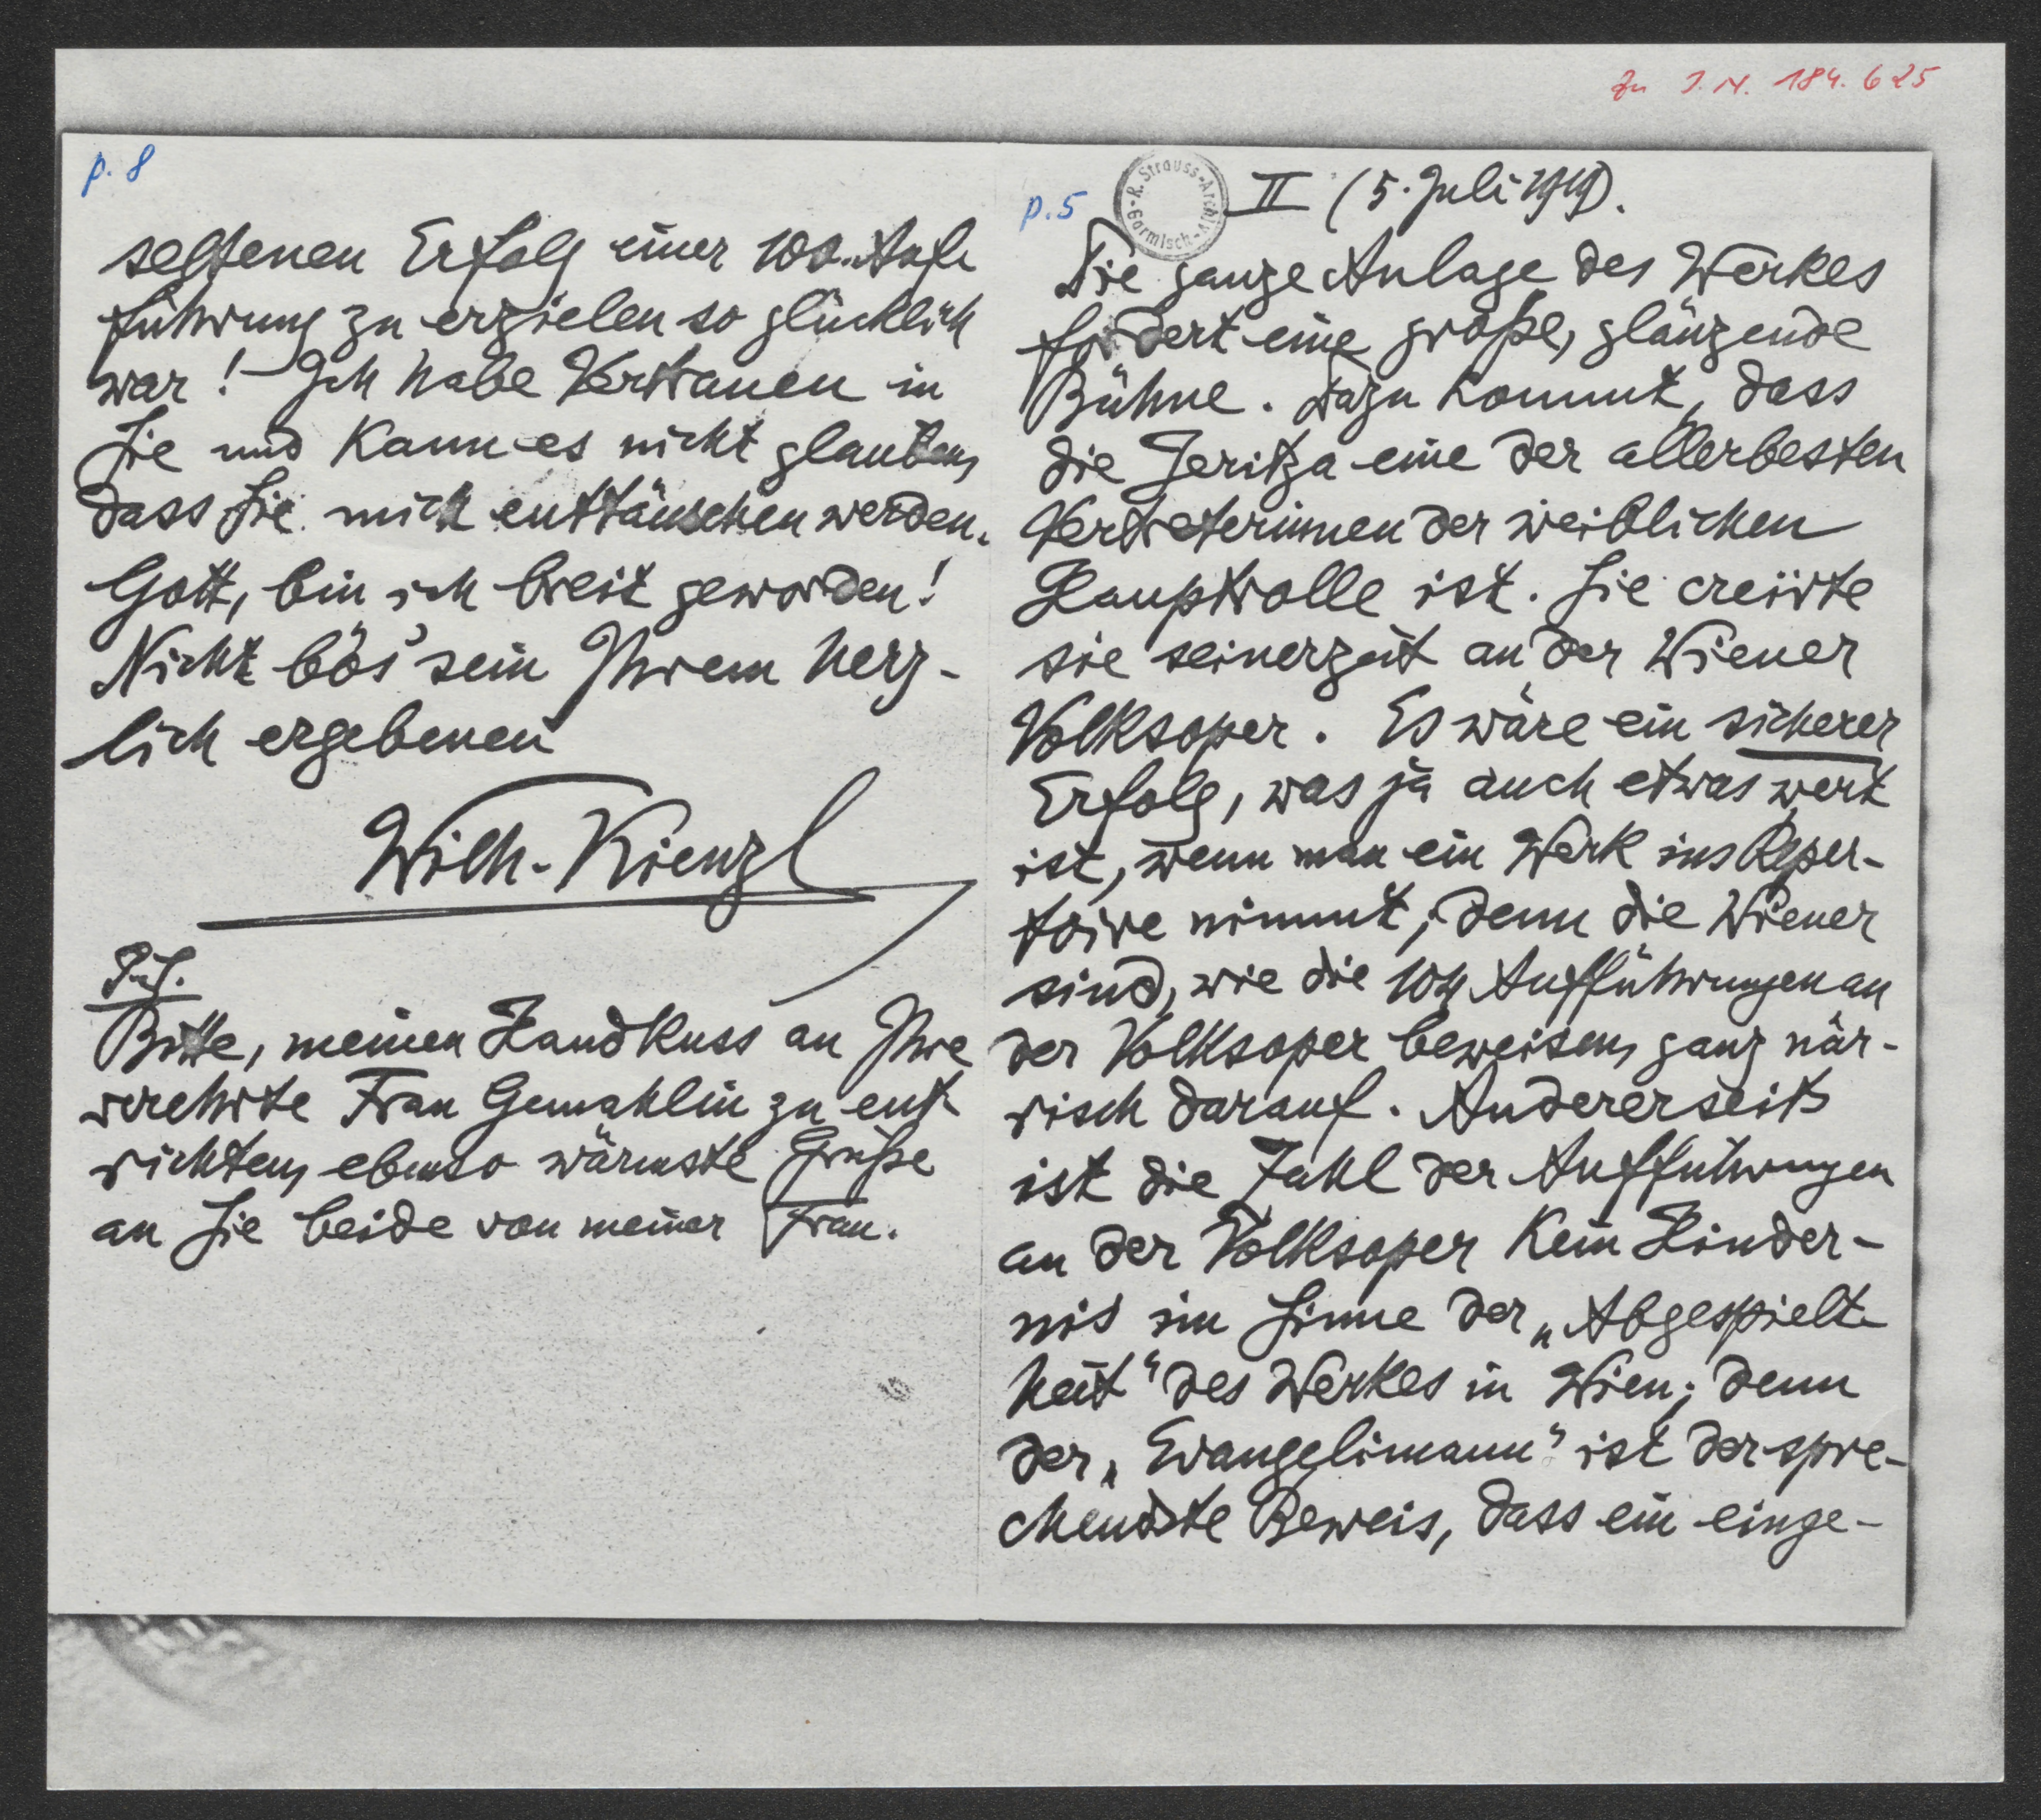 Zu I.N. 184.625
p. 8
seltenen Erfolg einer 100. Auf-
führung zu erzielen so glücklich
war! – Ich habe Vertrauen in
Sie und kann es nicht glauben,
dass Sie mich enttäuschen werden.
Gott, bin ich breit geworden!
Nicht bös' sein Ihrem herz-
lich ergebenen
Wilh. Kienzl
P.S.
Bitte, meinen Handkuss an Ihre
verehrte Frau Gemahlin zu ent-
richten, ebenso wärmste Grüße
an Sie beide von meiner Frau.
p. 5
R. Strauss-Archiv - Garmisch -
II (5. Juli 1919).
Die ganze Anlage des Werkes
fordert eine große, glänzende
Bühne. Dazu kommt, dass
die Jeritza eine der allerbesten
Vertreterinnen der weiblichen
Hauptrolle ist. Sie creiirte
sie seinerzeit an der Wiener
Volksoper. Es wäre ein sicherer
Erfolg, was ja auch etwas wert
ist, wenn man ein Werk ins Reper-
toire nimmt; denn die Wiener
sind, wie die 104 Aufführungen an
der Volksoper beweisen, ganz när-
risch darauf. Andererseits
ist die Zahl der Aufführungen
an der Volksoper kein Hinder-
nis im Sinne der „Abgespielt-
heit" des Werkes in Wien; denn
der „Evangelimann" ist der spre-
chendste Beweis, dass ein einge-